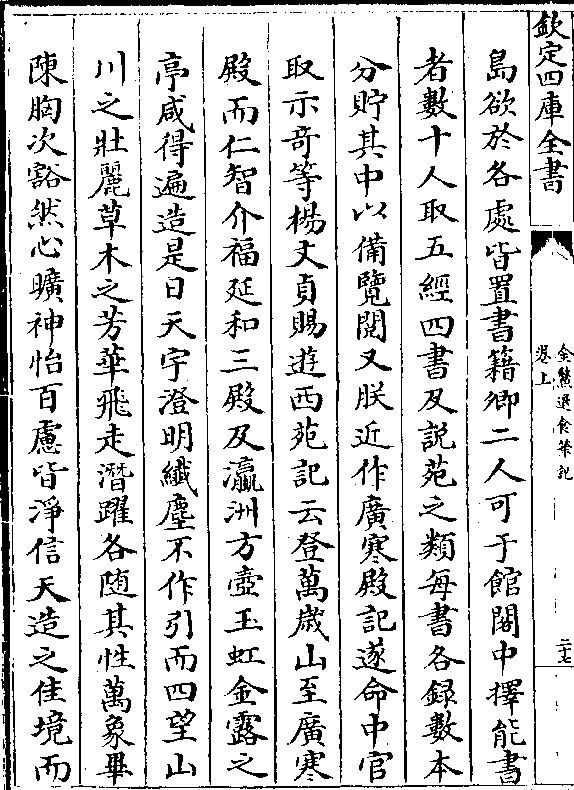 欽定四庫全書
金鰲退食筆記
卷上
二十七
島欲於各處皆置書籍卿二人可于館閣中擇能書
者數十人取五經四書及説苑之類每書各録數本
分貯其中以備覽閲又朕近作廣寒殿記遂命中官
取示奇等楊文貞賜遊西苑記云登萬歲山至廣寒
殿而仁智介福延和三殿及瀛洲方壺玉虹金露之
亭咸得遍造是日天宇澄明纎塵不作引而四望山
川之壯麗草木之芳華飛走潛躍各随其性萬象畢
陳胸次豁然心曠神怡百慮皆淨信天造之佳境而